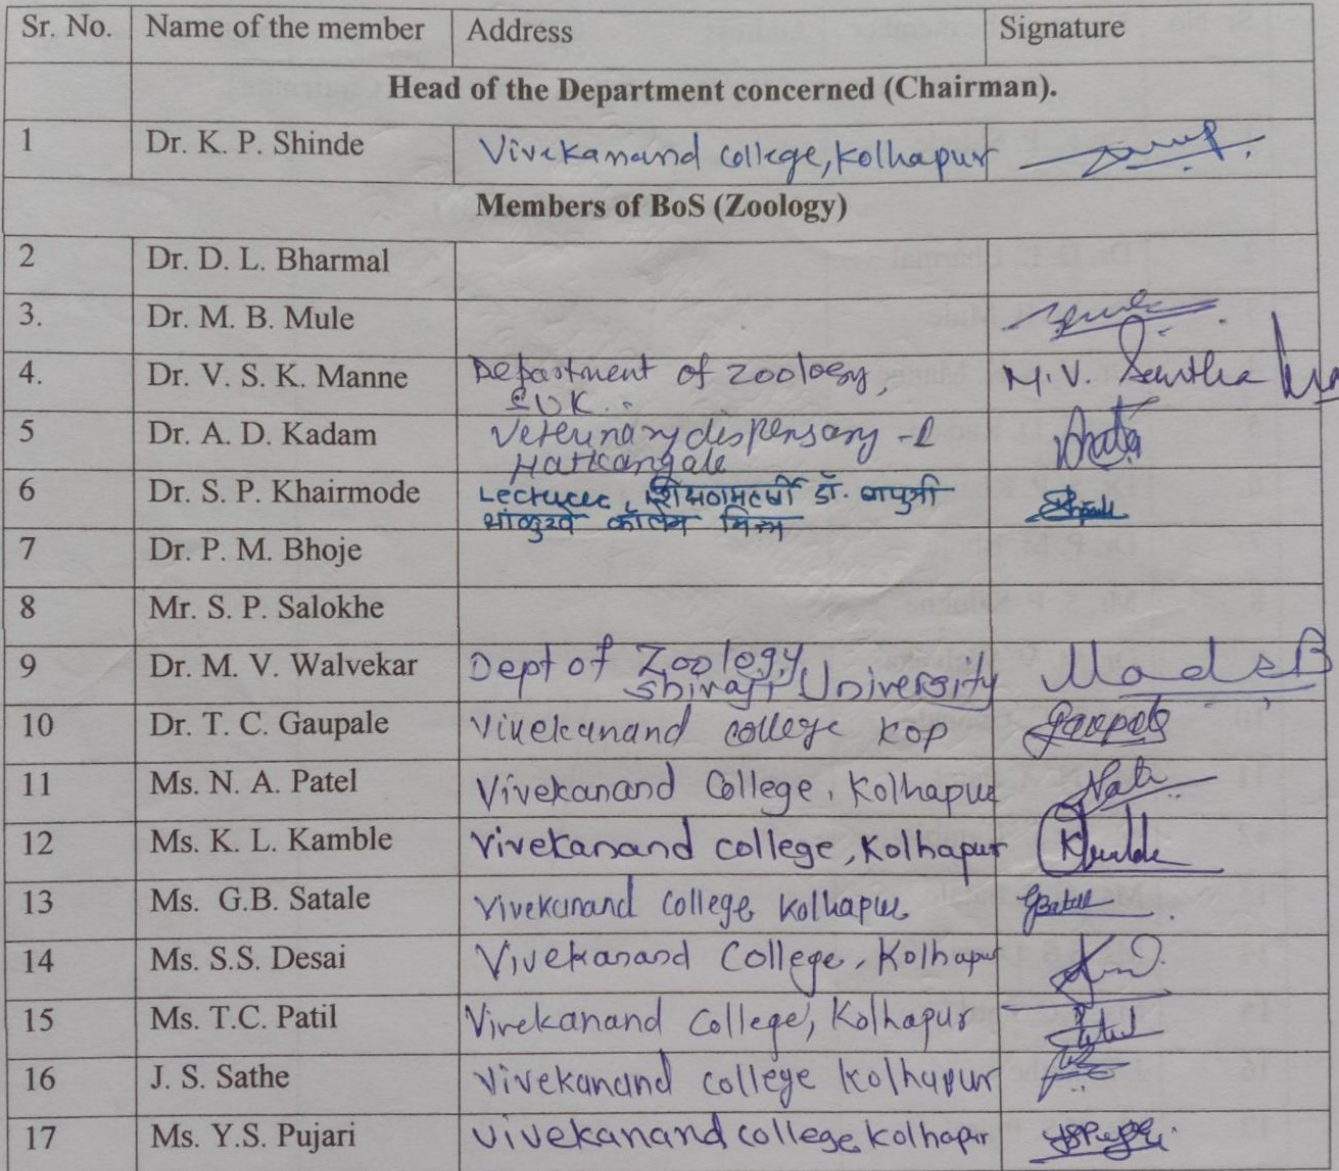 Sr. No. Name of the member Address Signature
Head of the Department concerned (Chairman).
1 Dr. K. P. Shinde Vivekanand college, Kolhapur
Members of BoS (Zoology)
2 Dr. D. L. Bharmal
3. Dr. M. B. Mule
4. Dr. V. S. K. Manne Department of Zoology,
SUK.
5 Dr. A. D. Kadam Veterinary dispensary -1
Hatkangale
6 Dr. S. P. Khairmode Lecturer, डॉ. बापुजी
साळुंखे कॉलेज मिरज
7 Dr. P. M. Bhoje
8 Mr. S. P. Salokhe
9 Dr. M. V. Walvekar Dept of Zoology,
Shivaji University
10 Dr. T. C. Gaupale Vivekanand college KOP Gaupale
11 Ms. N. A. Patel Vivekanand College, Kolhapur
12 Ms. K. L. Kamble Vivekanand college, Kolhapur
13 Ms. G.B. Satale Vivekanand college Kolhapur
14 Ms. S.S. Desai Vivekanand College, Kolhapur
15 Ms. T.C. Patil Vivekanand College, Kolhapur
16 J. S. Sathe Vivekanand college Kolhapur
17 Ms. Y.S. Pujari Vivekanand college Kolhapur